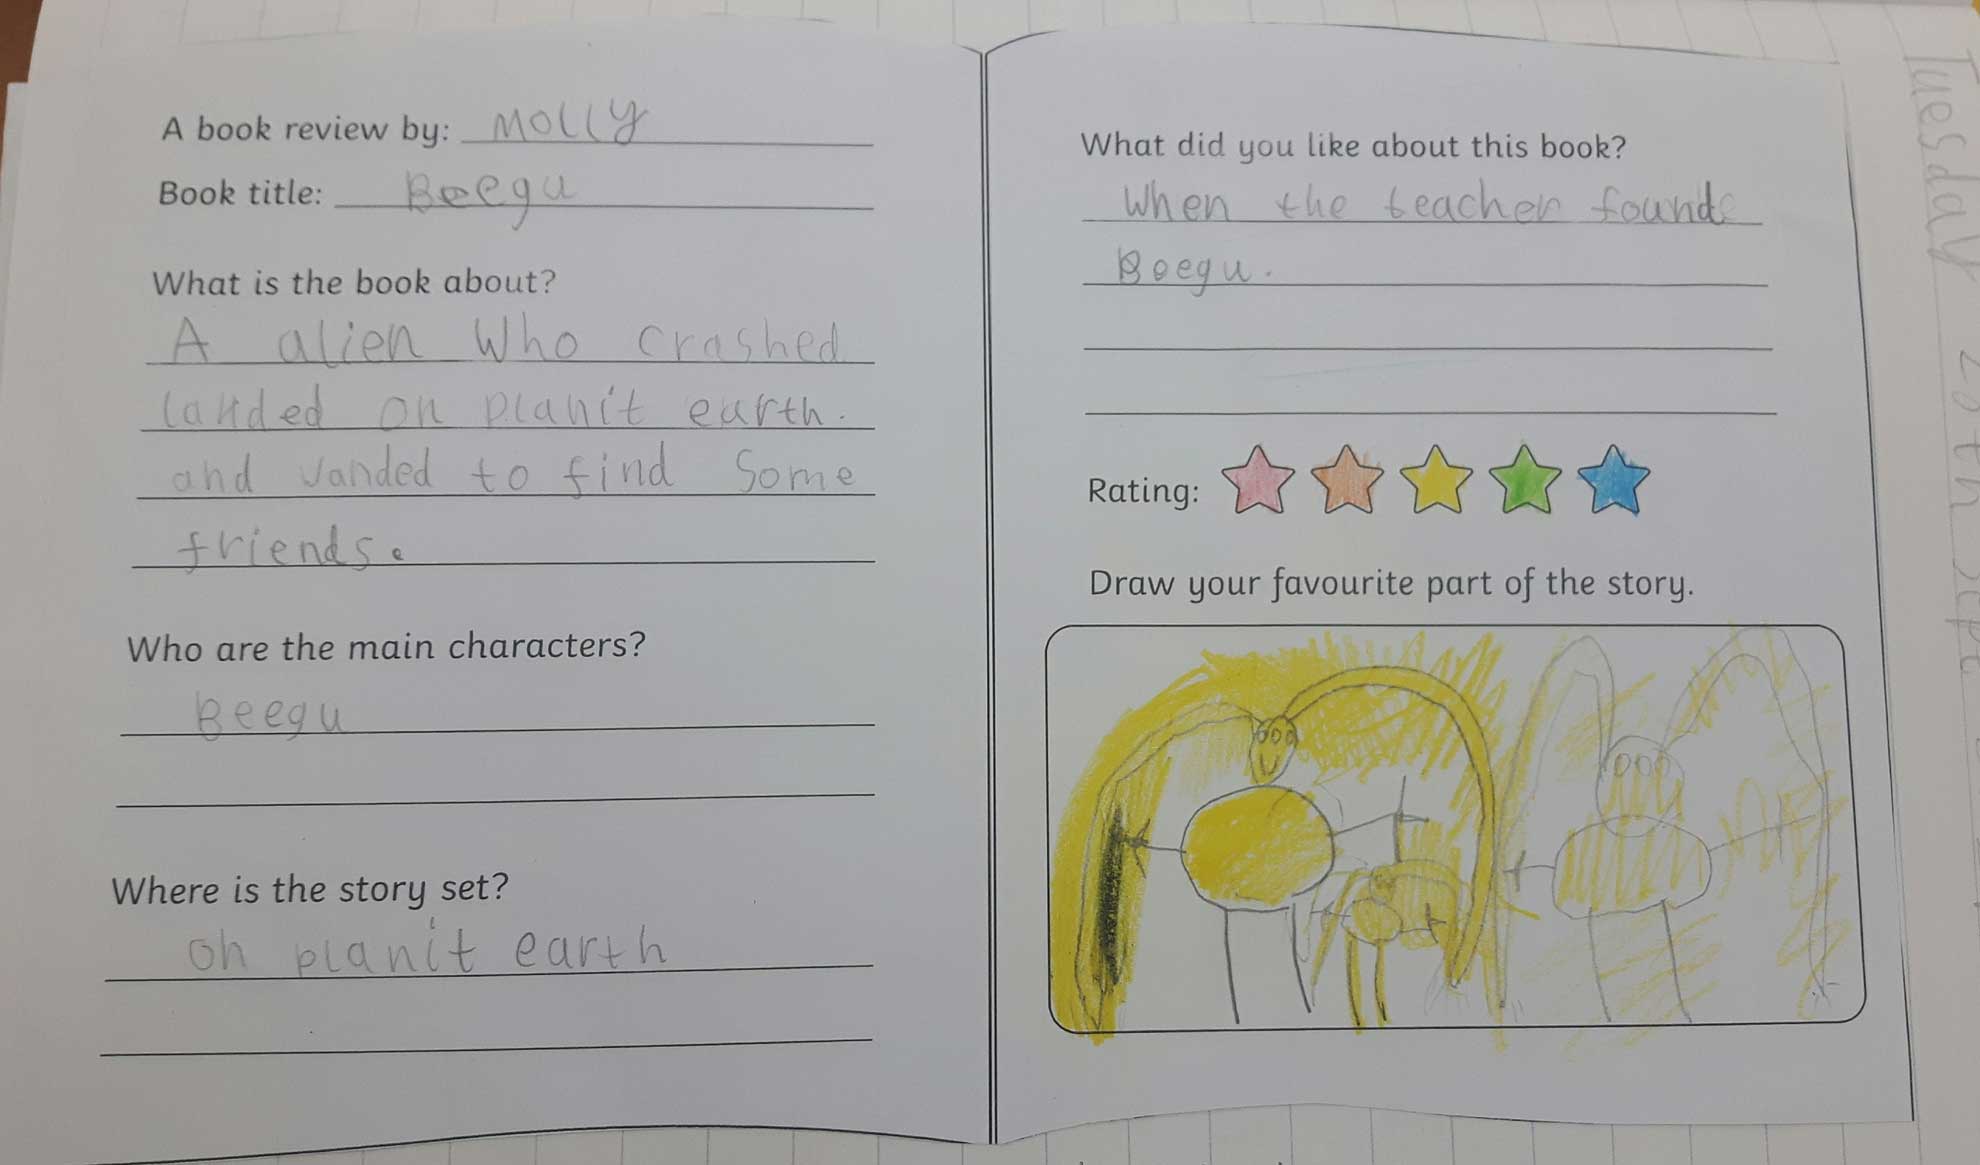 A book review by: Molly
Book title: Beegu
What is the book about?
A alien who crashed
landed on planit earth.
and vanded to find some
friends.
Who are the main characters?
Beegu
Where is the story set?
on planit earth
What did you like about this book?
When the teacher found
Beegu.
Rating:
Draw your favourite part of the story.
Tuesday 20th Sept